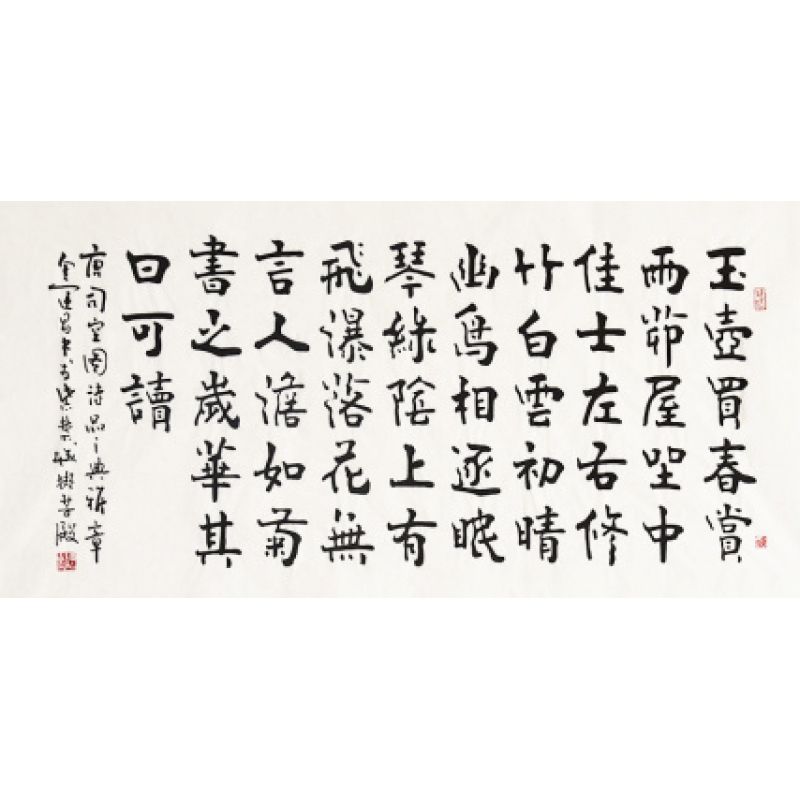 玉壺買春賞
雨茆屋坐中
佳士左右修
竹白雲初晴
幽鳥相逐眠
琴綠陰上有
飛瀑落花無
言人澹如菊
書之歲華其
曰可讀
唐司空圖詩品之典雅章
金運昌書於紫禁城殿